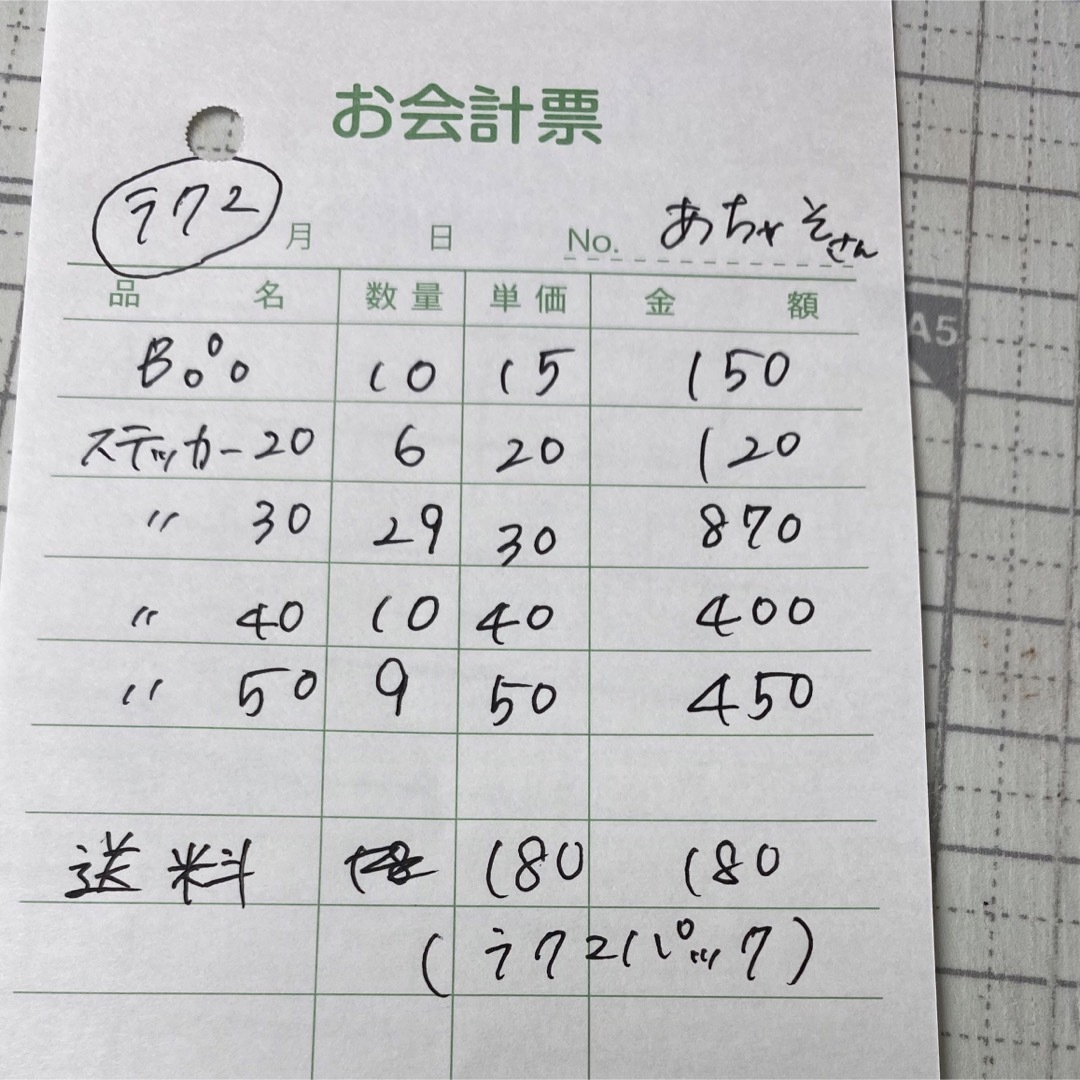 お会計票
ラクマ 月 日 No. あちゃそさん
品名 数量 単価 金額
B 10 15 150
ステッカー20 6 20 120
〃 30 29 30 870
〃 40 10 40 400
〃 50 9 50 450
送料 180 180
(ラクマパック)
A5